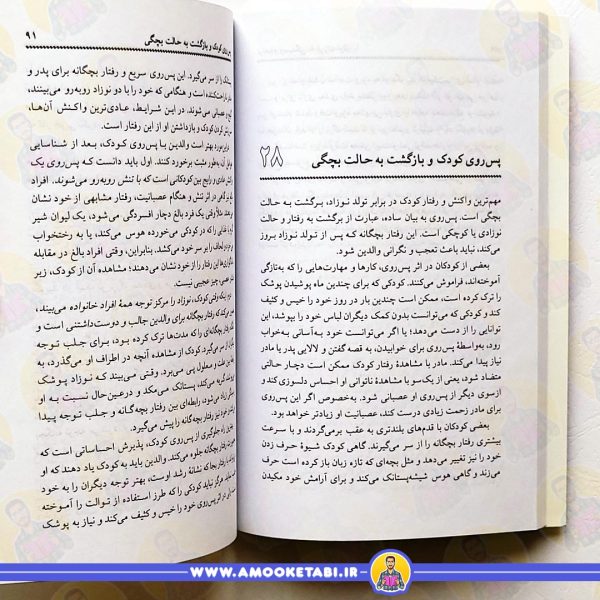 ۲۸
پس‌روی کودک و بازگشت به حالت بچگی
مهم‌ترین واکنش و رفتار کودک در برابر تولد نوزاد، برگشت به حالت
بچگی است. پس‌روی به بیان ساده، عبارت از برگشت به رفتار و حالت
نوزادی یا کوچکی است. این رفتار بچگانه که پس از تولد نوزاد بروز
می‌کند، نباید باعث تعجب و نگرانی والدین شود.
بعضی از کودکان در اثر پس‌روی، کارها و مهارت‌هایی را که به‌تازگی
آموخته‌اند، فراموش می‌کنند. کودکی که برای چندین ماه پوشیدن پوشک
را ترک کرده است، ممکن است چندین بار در روز خود را خیس و کثیف
کند و کودکی که می‌توانست بدون کمک دیگران لباس خود را بپوشد، این
توانایی را از دست می‌دهد؛ یا اگر می‌توانست خود به‌آسانی به‌خواب
رود، به‌واسطهٔ پس‌روی برای خوابیدن، به قصه گفتن و لالایی پدر یا مادر
نیاز پیدا می‌کند. مادر با مشاهدهٔ رفتار کودک ممکن است دچار حالتی
متضاد شود، یعنی از یک‌سو با مشاهدهٔ ناتوانی او احساس دلسوزی کند و
ازسوی دیگر از پس‌روی او عصبانی شود. به‌خصوص اگر این پس‌روی
برای مادر زحمت زیادی درست کند، عصبانیت او زیادتر خواهد بود.
بعضی کودکان با قدم‌های بلندتری به عقب برمی‌گردند و با سرعت
بیشتری رفتار بچگانه را از سر می‌گیرند. گاهی کودک شیوهٔ حرف زدن
خود را نیز تغییر می‌دهد و مثل بچه‌ای که تازه زبان باز کرده است حرف
می‌زند و گاهی هوس شیشه‌پستانک می‌کند و برای آرامش خود مکیدن
پس‌روی کودک و بازگشت به حالت بچگی ۹۱
را از سر می‌گیرد. این پس‌روی سریع و رفتار بچگانه برای پدر و
ناراحت‌کننده است و هنگامی که خود را با دو نوزاد روبه‌رو می‌بینند،
و عصبانی می‌شوند. در این شرایط، عادی‌ترین واکنش آن‌ها،
کردن کودک و بازداشتن او از این رفتار است.
والدین مورد بهتر است والدین با پس‌روی کودک، بعد از شناسایی
آن به‌طور مثبت برخورد کنند. اول باید دانست که پس‌روی یک
عادی و رایج بین کودکانی است که با تنش روبه‌رو می‌شوند. افراد
بزرگ گاهی در اثر تنش و هنگام عصبانیت، رفتار مشابهی از خود نشان
می‌دهند. مثلاً وقتی یک فرد بالغ دچار افسردگی می‌شود، یک لیوان شیر
را که در کودکی می‌خورده است هوس می‌کند، یا به رختخواب
و لحاف برسر خود می‌کشد. بنابراین، وقتی افراد بالغ در مقابله
این رفتار را از خود نشان می‌دهند؛ مشاهده آن از کودک، زیر
عصبی چیز عجیبی نیست.
دوم اینکه وقتی کودک، نوزاد را مرکز توجه همهٔ افراد خانواده می‌بیند،
که رفتار بچگانه برای والدین جالب و دوست‌داشتنی است و
رفتار بچگانه‌ای را که مدت‌ها ترک کرده بود، برای جلب توجه
می‌گیرد. کودک از مشاهده آنچه در اطراف او می‌گذرد، به
علت و معلول پی می‌برد. وقتی می‌بیند که نوزاد پوشک
کثیف می‌کند، پستانک می‌مکد و درعین‌حال نسبت به او
می‌شود، رابطه‌ای بین رفتار بچه‌گانه و جلب توجه پیدا
خود نیز رفتار بچگانه را پیش می‌گیرد.
راه جلوگیری از پس‌روی کودک، پذیرش احساساتی است که
رفتار بچگانه جلوه می‌کند. والدین باید به کودک یاد دهند که او
با رفتار بجا که نشانهٔ رشد اوست، بهتر توجه دیگران را به خود
هرگز نباید کودکی را که طرز استفاده از توالت را آموخته
در اثر پس‌روی خود را خیس و کثیف می‌کند و نیاز به پوشک
WWW.AMOOKETABI.IR